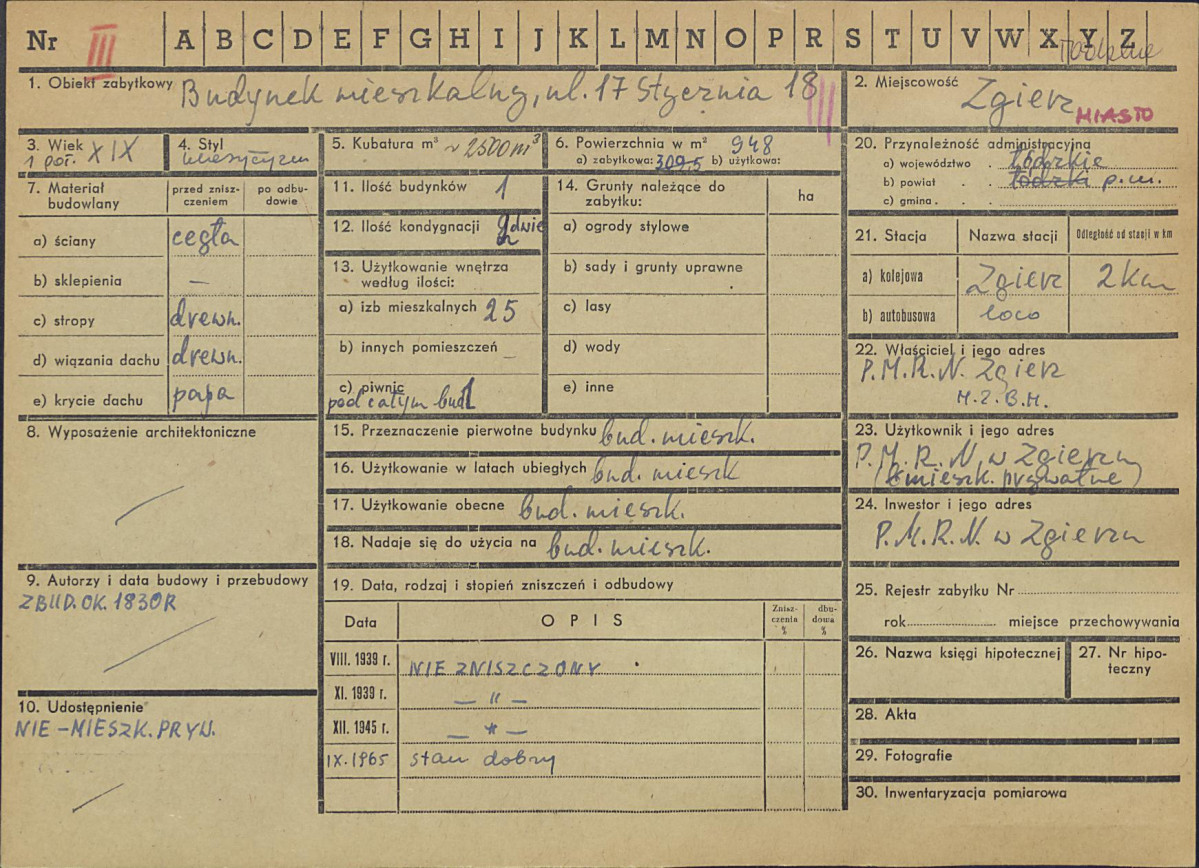 Nr III A B C D E F G H I J K L M N O P R S T U V W X Y Z
1. Obiekt zabytkowy Budynek mieszkalny, ul. 17 Stycznia 18
III
2. Miejscowość Zgierz
MIASTO
3. Wiek
1 poł. XIX
4. Styl
5. Kubatura m³ ~ 2500 m³
6. Powierzchnia w m² 948
a) zabytkowa: 309,5 b) użytkowa:
7. Materiał budowlany
przed zniszczeniem
po odbudowie
a) ściany cegła
b) sklepienia —
c) stropy drewn.
d) wiązania dachu drewn.
e) krycie dachu papa
8. Wyposażenie architektoniczne
9. Autorzy i data budowy i przebudowy
ZBUD. OK. 1830R
10. Udostępnienie
NIE - MIESZK. PRYW.
11. Ilość budynków 1
12. Ilość kondygnacji dwie
13. Użytkowanie wnętrza
według ilości:
a) izb mieszkalnych 25
b) innych pomieszczeń —
c) piwnic
pod całym bud.
14. Grunty należące do
zabytku:
ha
a) ogrody stylowe
b) sady i grunty uprawne
c) lasy
d) wody
e) inne
15. Przeznaczenie pierwotne budynku bud. mieszk.
16. Użytkowanie w latach ubiegłych bud. mieszk
17. Użytkowanie obecne bud. mieszk.
18. Nadaje się do użycia na bud. mieszk.
19. Data, rodzaj i stopień zniszczeń i odbudowy
Data
OPIS
Zniszczenia %
dbudowa %
VIII. 1939 r. NIE ZNISZCZONY
XI. 1939 r. — " —
XII. 1945 r. — " —
IX. 1965 stan dobry
20. Przynależność administracyjna
a) województwo . Łódzkie
b) powiat . . łódzki p. m.
c) gmina . . .
21. Stacja
Nazwa stacji
Odległość od stacji w km
a) kolejowa Zgierz 2 km
b) autobusowa loco
22. Właściciel i jego adres
P.M.R.N. Zgierz
M.Z.B.M.
23. Użytkownik i jego adres
P.M.R.N w Zgierzu
(mieszk. prywatne)
24. Inwestor i jego adres
P.M.R.N. w Zgierzu
25. Rejestr zabytku Nr
rok miejsce przechowywania
26. Nazwa księgi hipotecznej
27. Nr hipoteczny
28. Akta
29. Fotografie
30. Inwentaryzacja pomiarowa